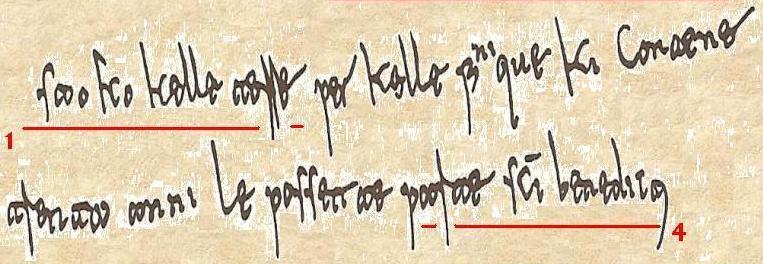 sao ko kelle terre per kelle fini que ki Contene
trenta anni le possette parte sc̄i benedicti
1
4